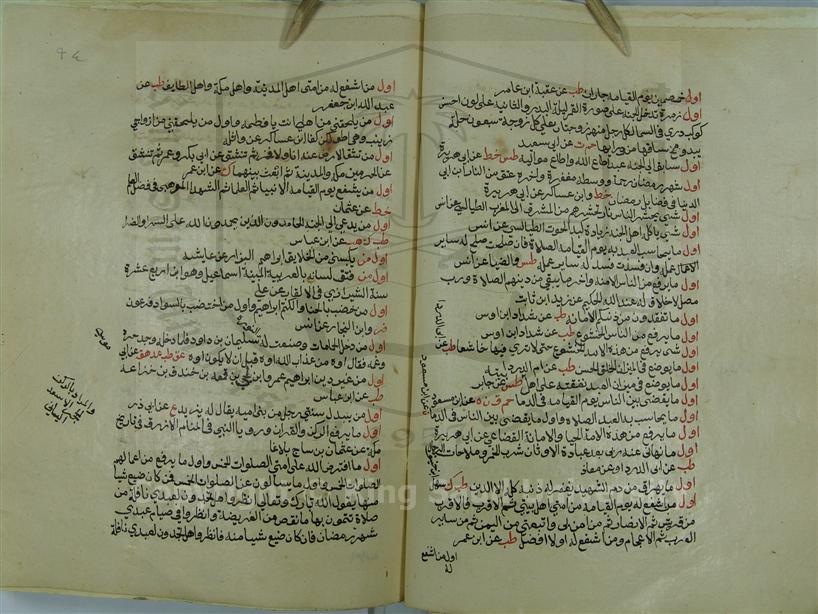 اول خصمين يوم القيامة جاران طب عن عقبة ابن عامر
اول زمرة تدخل الجنة على صورة القمر ليلة البدر والثانية على لون احسن
كوكب دري في السما لكل رجل منهم زوجتان على كل زوجة سبعون حلة
يبدو مخ ساقها من ورايها حم ت عن ابي سعيد
اول سابق الى الجنة عبد اطاع الله واطاع مواليه طس خط عن ابي هريرة
اول شهر رمضان رحمة ووسطه مغفرة واخره عتق من النار ابن ابي
الدنيا في فضايل رمضان خط وابن عساكر عن ابي هريرة
اول شي يحشر الناس نار تحشرهم من المشرق الى المغرب الطيالسي عن انس
اول شي ياكله اهل الجنة زيادة كبد الحوت الطيالسي عن انس
اول ما يحاسب به العبد يوم القيامة الصلاة فان صلحت صلح له ساير
الاعمال عمله وان فسدت فسد له ساير عمله طس والضيا عن انس
اول ما يرفع من الناس الامانة واخر ما يبقى من دينهم الصلاة ورب
مصل لا خلاق له عند الله الحكيم عن زيد ابن ثابت
اول ما تفقدون من دينكم الامانة طب عن شداد ابن اوس
اول ما يرفع من الناس الخشوع طب عن شداد ابن اوس
اول شي يرفع من هذه الامة الخشوع حتى لا ترى فيها خاشعا طب
عن ابي الدردا
اول ما يوضع في الميزان الخلق الحسن طب عن ام الدردا
اول ما يوضع في ميزان العبد نفقته على اهله طس عن جابر
اول ما يقضى بين الناس يوم القيامة في الدما حم ق ن ه عن ابن مسعود
اول ما يحاسب به العبد الصلاة واول ما يقضى بين الناس في الدما
ن عن ابن مسعود
اول ما يرفع من هذه الامة الحيا والامانة القضاعي عن ابي هريرة
اول ما نهاني عنه ربي بعد عبادة الاوثان شرب الخمر وملاحات الرجال
طب عن ابي الدردا وعن معاذ
اول ما يهراق من دم الشهيد يغفر له ذنبه كله الا الدين طب ك
اول من اشفع له يوم القيامة من امتي اهل بيتي ثم الاقرب فالاقرب
من قريش ثم الانصار ثم من امن بي واتبعني من اليمن ثم من ساير
العرب ثم الاعجام ومن اشفع له اولا افضل طب عن ابن عمر
اول من اشفع
له
اول من اشفع له من امتي اهل المدينة واهل مكة واهل الطايف طب عن
عبد الله ابن جعفر
اول من يلحقني من اهلي انت يا فاطمة واول من يلحقني من ازواجي
زينب وهي اطولكن كفا ابن عساكر عن واثلة
اول من تنشق الارض عنه انا ولا فخر ثم تنشق عن ابي بكر وعمر ثم تنشق
عن الحرمين مكة والمدينة ثم ابعث بينهما ك عن ابن عمر
اول من يشفع يوم القيامة الانبيا ثم العلما ثم الشهدا الموهبي في فضل العلم
خط عن عثمان
اول من يدعى الى الجنة الحامدون الذين يحمدون الله على السرا والضرا
طب ك هب عن ابن عباس
اول من يكسى من الخلايق ابراهيم البزار عن عايشة
اول من فتق لسانه بالعربية البينة اسماعيل وهو ابن اربع عشرة
سنة الشيرازي في الالقاب عن علي
اول من خضب بالحنا والكتم ابراهيم واول من اختضب بالسواد فرعون
فر وابن النجار عن انس
اول من دخل الحمامات وصنعت له النورة سليمان بن داود فلما دخله وجد حره
وغمه فقال اوه من عذاب الله اوه قبل ان لا يكون اوه عق طب عد هق عن ابي
موسى
اول من غير دين ابراهيم عمرو ابن لحي بن قمعة بن خندف بن خزاعة
طب عن ابن عباس
اول من يبدل سنتي رجل من بني امية يقال له يزيد ع عن ابي ذر
اول ما يرفع الركن والقران ورويا النبي في المنام الازرقي في تاريخ
مكة عن عثمان بن ساج بلاغا
اول ما افترض الله على امتي الصلوات الخمس واول ما يرفع من اعمالهم
الصلوات الخمس واول ما يسالون عن الصلوات الخمس فمن كان ضيع شيا
منها يقول الله تبارك وتعالى انظروا هل تجدون لعبدي نافلة من
صلاة تتمون بها ما نقص من الفريضة وانظروا في صيام عبدي
شهر رمضان فان كان ضيع شيا منه فانظروا هل تجدون لعبدي نافلة